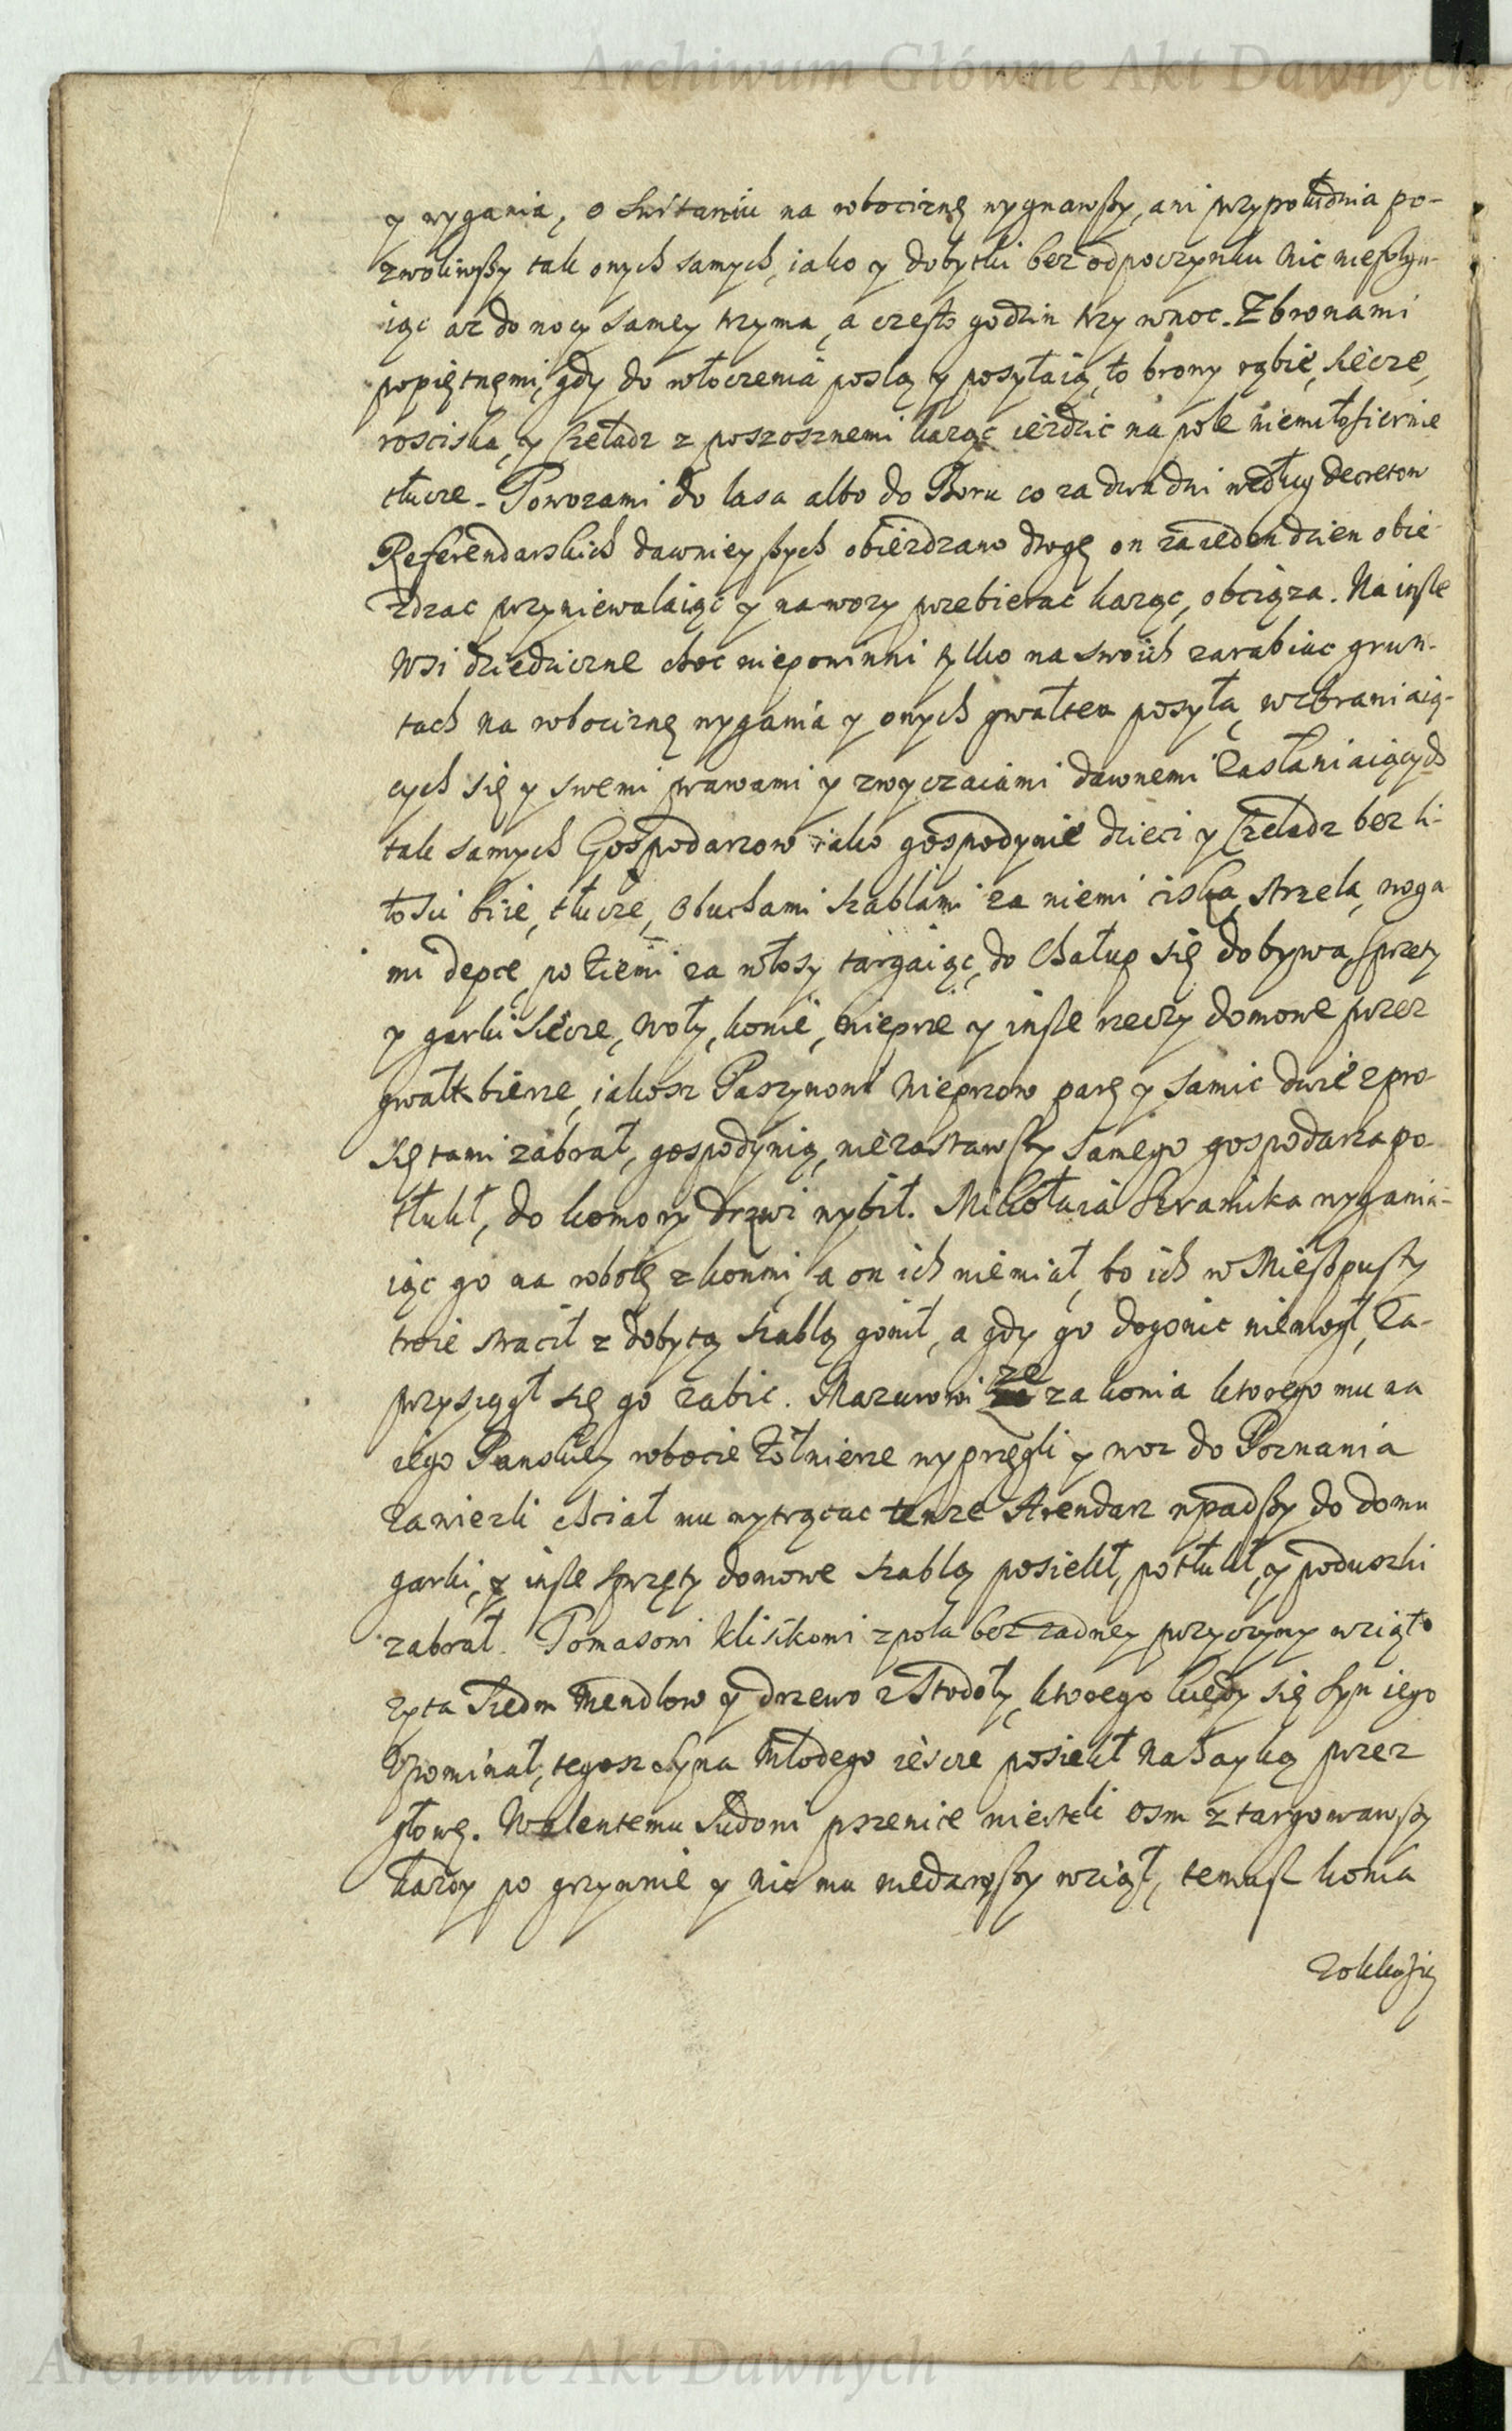 Archiwum Główne Akt Dawnych
y wygania, o switaniu na robociznę wygnawszy, ani przypołudnia po-
zwoliwszy tak onych samych, iako y dobytki bez odpoczynku nic niefolgu-
iąc az do nocy samey trzyma, a często godzin trzy wnoc. Zbronami
popiętnęmi, gdy do włoczenia poslą y posyłaią, to brony rąbie, siecze,
rosciska, y Czeladz z poszosznemi kaząc iezdzic na pole niemiłosiernie
tłucze. Powozami do lasa albo do Boru co za dwa dni według decretow
Referendarskich dawnieyszych obiezdzano drogę on za ieden dzien obie-
zdzac przyniewalaiąc y nawozy przebierac kaząc, obciąza. Na insze
Wsi dziedziczne choc niepowinni tylko na swoich zarabiac grun-
tach na robociznę wygania y onych gwałtem posyła, wzbraniaią-
cych się y swemi prawami y zwyczaiami dawnemi Zasłaniaiących
tak samych Gospodarzow iako gospodynie dzieci y Czeladz bez li-
tosci biie, tłucze, Obuchami szablami za niemi ciska, strzela, noga-
mi depce, po Ziemi za włosy targaiąc, do Chałup się dobywa, sprzęty
y garki siecze, Woły, konie, wieprze y insze rzeczy domowe przez
gwałt bierze, iakosz Paszynowi Wieprzow parę y samic dwie zpro-
siętami zabrał, gospodynią, niezastawszy samego gospodarza po-
tłukł, do komory drzwi wybił. Mikołaia Skramka wygania-
iąc go na robotę zkonmi, a on ich niemiał, bo ich w Miesopusty
troie stracił z dobytą szablą gonił, a gdy go dogonic niemogł, Za-
przysiągł się go zabic. Mazurowi ze za konia ktorego mu na
iego Panskiey robocie Zołnierze wyprzęgli y woz do Poznania
Zawiezli chciał mu wytrącac tenze Arendarz wpadszy do domu
garki, y insze sprzęty domowe szablą posiekł, potłukł, y poduszki
zabrał. Tomasowi Klisikowi zpola bez zadney przyczyny wziął
zyta siedm Mendlow y drzewo zStodoły, ktorego kiedy się syn iego
Upominał, tegosz syna Młodego ieszcze posiekł Nahayką przez
głowę. Walentemu Sudowi pszenice wierteli osm ztargowawszy
kazdy po grzywnie y nic mu niedawszy wziął, temusz konia
Archiwum Główne Akt Dawnych